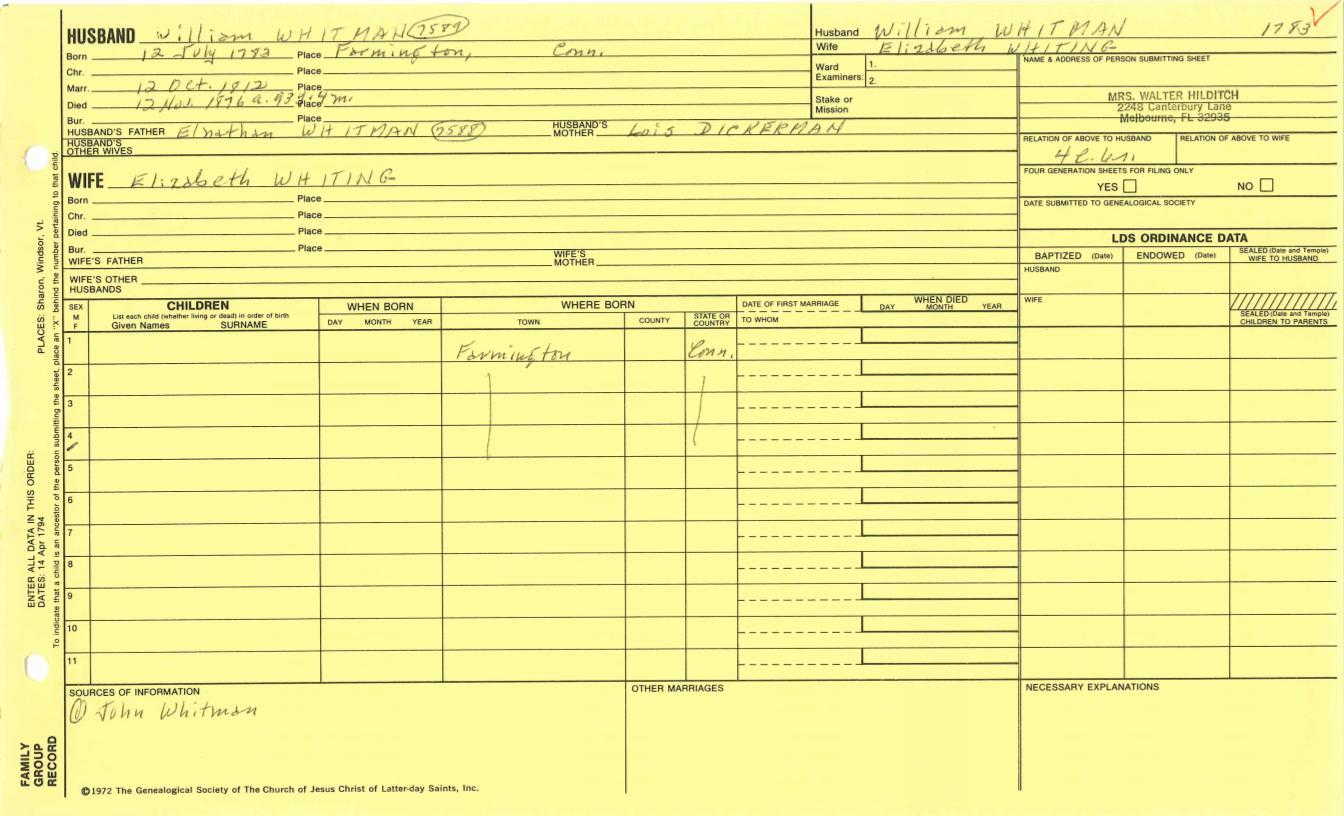 HUSBAND William WHITMAN 7589
Born 12 July 1783 Place Farmington, Conn.
Chr. Place
Marr. 12 Oct. 1812 Place
Died 12 Nov. 1876 a. 93y. 4m. Place
Bur. Place
HUSBAND'S FATHER Elnathan WHITMAN 7588 HUSBAND'S MOTHER Lois DICKERMAN
HUSBAND'S OTHER WIVES
WIFE Elizabeth WHITING
Born Place
Chr. Place
Died Place
Bur. Place
WIFE'S FATHER WIFE'S MOTHER
WIFE'S OTHER HUSBANDS
Husband William WHITMAN 1783
Wife Elizabeth WHITING
Ward Examiners: 1.
2.
Stake or Mission
NAME & ADDRESS OF PERSON SUBMITTING SHEET
MRS. WALTER HILDITCH
2248 Canterbury Lane
Melbourne, FL 32935
RELATION OF ABOVE TO HUSBAND RELATION OF ABOVE TO WIFE
4 c.
FOUR GENERATION SHEETS FOR FILING ONLY
YES NO
DATE SUBMITTED TO GENEALOGICAL SOCIETY
LDS ORDINANCE DATA
BAPTIZED (Date) ENDOWED (Date) SEALED (Date and Temple) WIFE TO HUSBAND
HUSBAND
WIFE
SEALED (Date and Temple) CHILDREN TO PARENTS
SEX M F CHILDREN WHEN BORN WHERE BORN DATE OF FIRST MARRIAGE WHEN DIED
List each child (whether living or dead) in order of birth
Given Names SURNAME DAY MONTH YEAR TOWN COUNTY STATE OR COUNTRY TO WHOM DAY MONTH YEAR
1 Farmington Conn.
2
3
4
5
6
7
8
9
10
11
SOURCES OF INFORMATION
① John Whitman
OTHER MARRIAGES
NECESSARY EXPLANATIONS
©1972 The Genealogical Society of The Church of Jesus Christ of Latter-day Saints, Inc.
FAMILY GROUP RECORD
ENTER ALL DATA IN THIS ORDER:
DATES: 14 Apr 1794 PLACES: Sharon, Windsor, Vt.
To indicate that a child is an ancestor of the person submitting the sheet, place an "X" behind the number pertaining to that child.